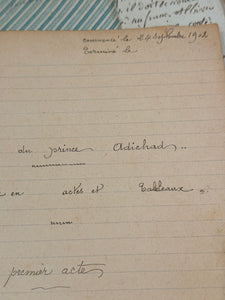 il doit de nous
commencé le 24 septembre 1902
Terminé le
du prince Adichad..
en actes et Tableaux.
premier acte